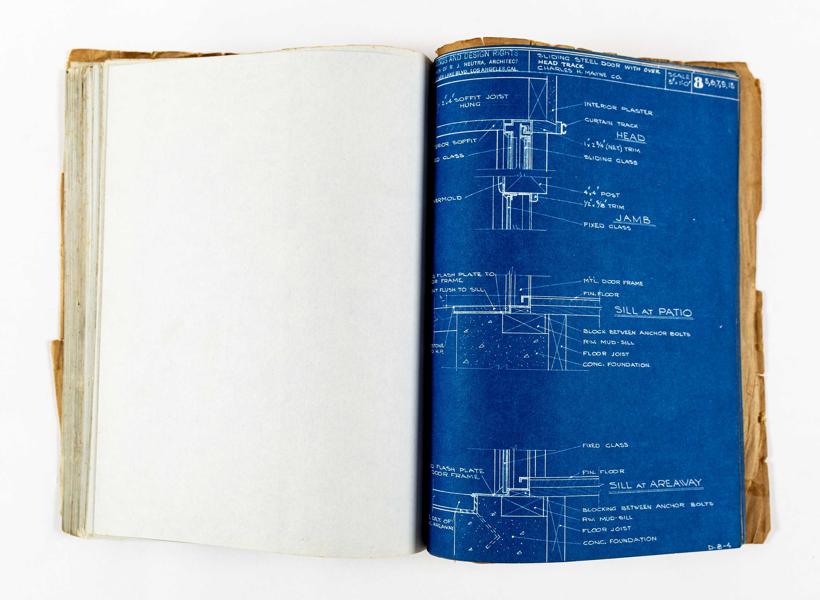 AND DESIGN RIGHTS
OF R. J. NEUTRA, ARCHITECT
LAKE BLVD. LOS ANGELES, CAL.
SLIDING STEEL DOOR WITH OVER
HEAD TRACK
CHARLES H. MAYNE CO.
SCALE
3"=1'-0"
8
5,6,7,9,15
SOFFIT JOIST
HUNG
SOFFIT
GLASS
INTERIOR PLASTER
CURTAIN TRACK
HEAD
TRIM
SLIDING GLASS
4"x4" POST
TRIM
JAMB
FIXED GLASS
FLASH PLATE TO
FRAME
FLUSH TO SILL
MTL. DOOR FRAME
FIN. FLOOR
SILL AT PATIO
BLOCK BETWEEN ANCHOR BOLTS
RW. MUD-SILL
FLOOR JOIST
CONC. FOUNDATION
FIXED GLASS
FLASH PLATE
DOOR FRAME
FIN. FLOOR
SILL AT AREAWAY
DET. OF
AREAWAY
BLOCKING BETWEEN ANCHOR BOLTS
RW. MUD-SILL
FLOOR JOIST
CONC. FOUNDATION
D-8-4